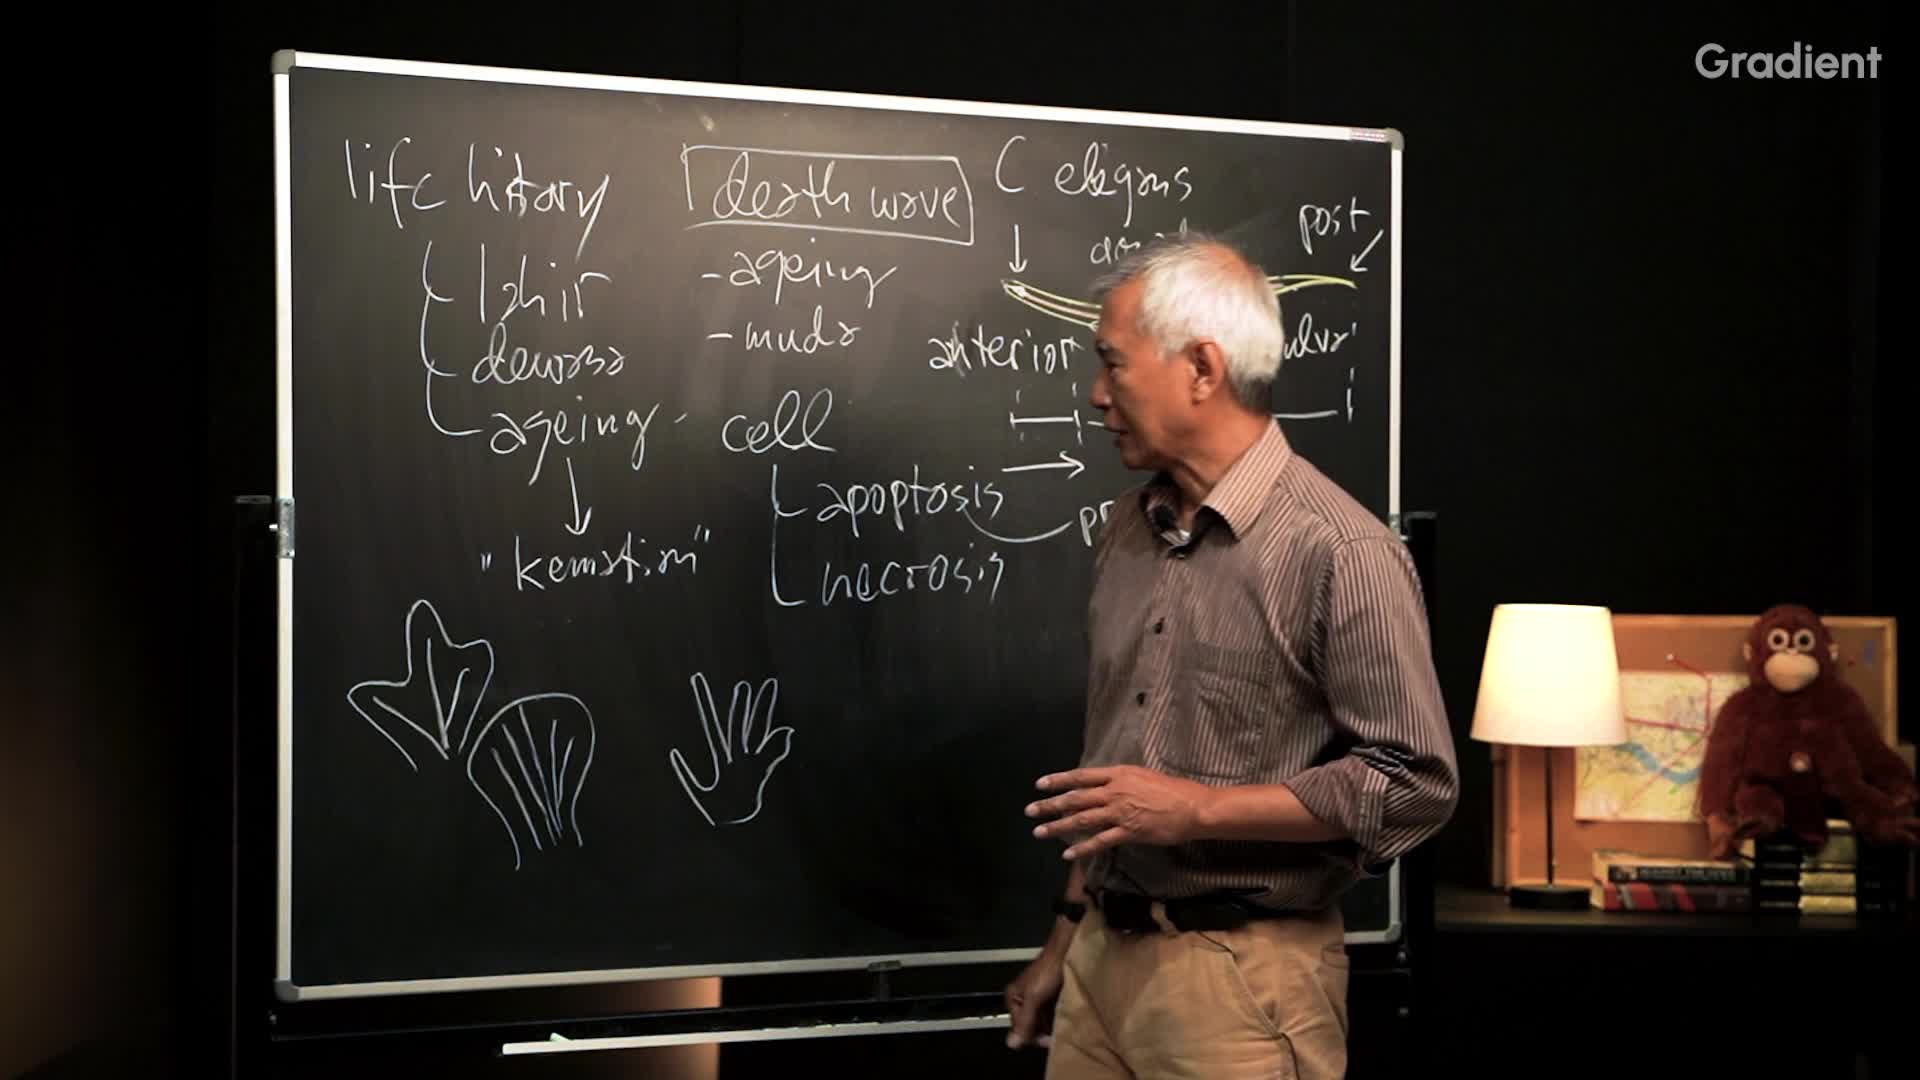 Gradient
life history
lahir
dewasa
ageing
"kematian"
death wave
- ageing
- muda
cell
apoptosis
necrosis
C elegans
post
anterior
vulva